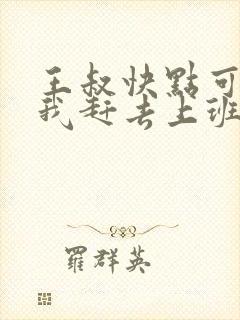 王叔快點可
我赶去上班
羅群英